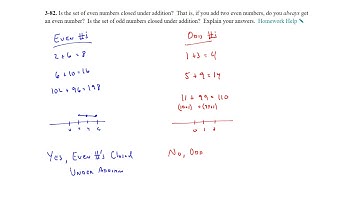 3-82. Is the set of even numbers closed under addition? That is, if you add two even numbers, do you always get
an even number? Is the set of odd numbers closed under addition? Explain your answers. Homework Help
Even #'s
2+6=8
6+10=16
102+96=198
Yes, Even #'s Closed
Under Addition
Odd #'s
1+3=4
5+9=14
11+99=110
No, Odd